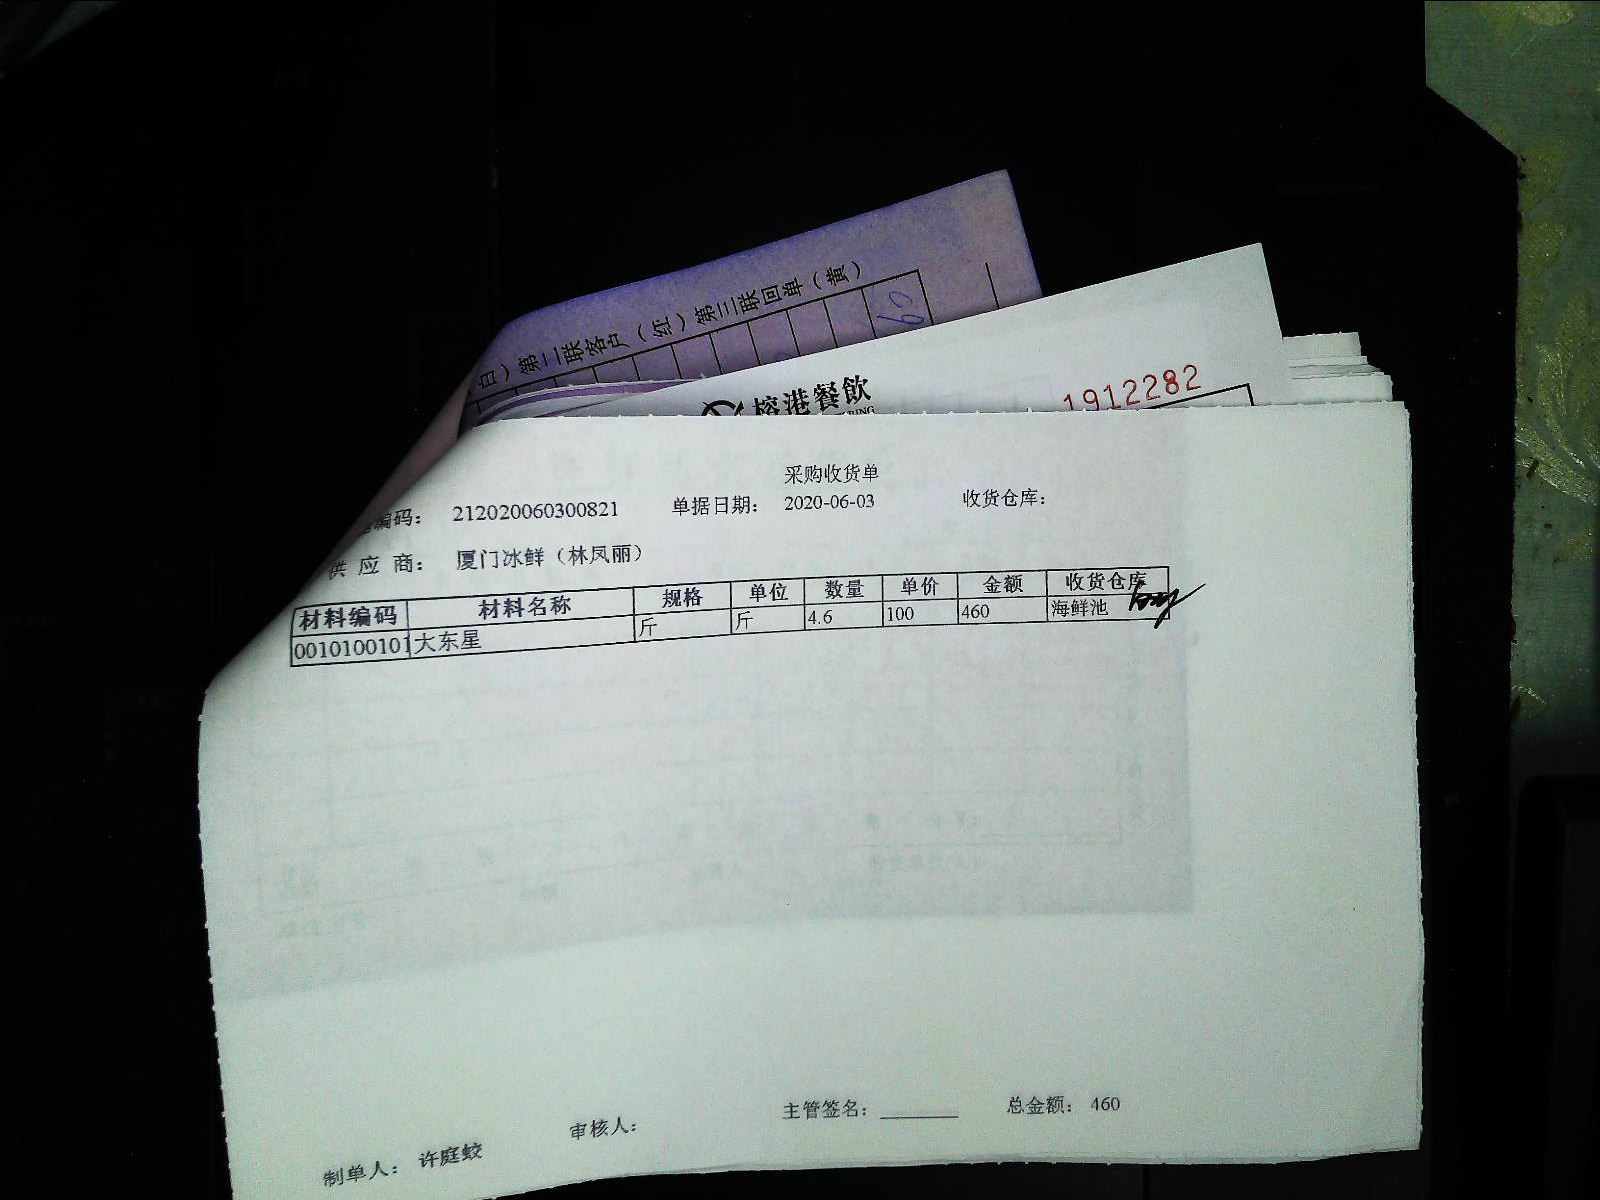 白）第二联客户（红）第三联回单（黄）
榕港餐飲
1912282
采购收货单
编码： 212020060300821 单据日期： 2020-06-03 收货仓库：
供 应 商： 厦门冰鲜（林凤丽）
材料编码 材料名称 规格 单位 数量 单价 金额 收货仓库
0010100101 大东星 斤 斤 4.6 100 460 海鲜池
主管签名： 总金额： 460
制单人： 许庭蛟 审核人：